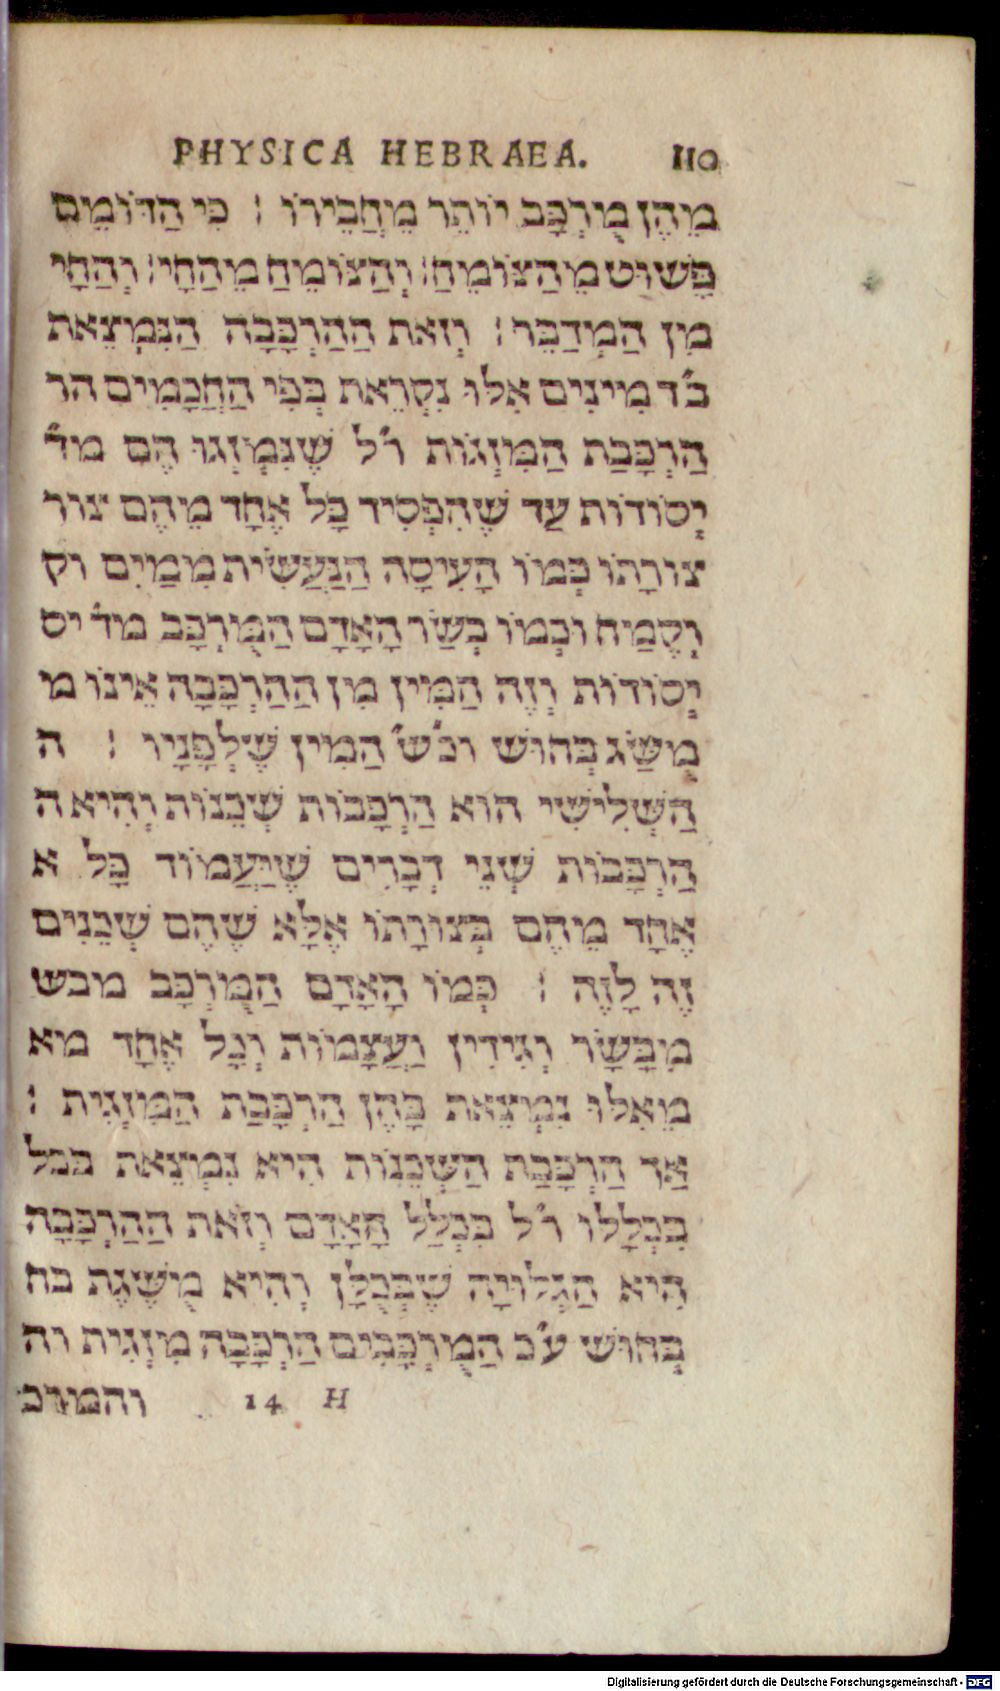 PHYSICA HEBRAEA. 110
מֵהֶן מֻרְכָּב יוֹתֵר מֵחֲבֵירוֹ : כִּי הַדּוֹמֵם
פָּשׁוּט מֵהַצּוֹמֵחַ: וְהַצּוֹמֵחַ מֵהַחָי: וְהַחָי
מִן הַמְדַבֵּר : וְזֹאת הַהַרְכָּבָה הַנִּמְצֵאת
בד' מִינִים אִלּוּ נִקְרֵאת בְּפִי הַחֲכָמִים הר
הַרְכָּבַת הַמִּזְגוֹת ר'ל שֶׁנִּמְזְגוּ הֶם מד'
יְסוֹדוֹת עַד שֶׁהִפְסִיד כָּל אֶחָד מֵהֶם צור
צוּרָתוֹ כְּמוֹ הָעִיסָה הַנַּעֲשִׂית מִמַּיִם וק
וְקֶמַח וּכְמוֹ בְּשַׂר הָאָדָם הַמֻּרְכָּב מד' יס
יְסוֹדוֹת וְזֶה הַמִּין מִן הַהַרְכָּבָה אֵינוֹ מ
מֻשָּׂג בְּחוּשׁ וכ'ש' הַמִּין שֶׁלְּפָנָיו : ה
הַשְּׁלִישִׁי הוּא הַרְכָּבוֹת שְׁכֵנוֹת וְהִיא ה
הַרְכָּבוֹת שְׁנֵי דְּבָרִים שֶׁיַּעֲמוֹד כָּל א
אֶחָד מֵהֶם בְּצוּרָתוֹ אֶלָּא שֶׁהֶם שְׁכֵנִים
זֶה לָזֶה : כְּמוֹ הָאָדָם הַמֻּרְכָּב מבש
מִבָּשָׂר וְגִידִין וַעֲצָמוֹת וְכָל אֶחָד מא
מֵאִלּוּ נִמְצֵאת בָּהֶן הַרְכָּבַת הַמִּזְגִית :
אַךְ הַרְכָּבַת הַשְּׁכֵנוֹת הִיא נִמְצֵאת בכל
בִּכְלָלוֹ ר'ל בִּכְלַל הָאָדָם וְזֹאת הַהַרְכָּבָה
הִיא הַגְּלוּיָה שֶׁבְּכֻלָּן וְהִיא מֻשֶּׂגֶת בח
בְּחוּשׁ ע'כ הַמֻּרְכָּבִים הַרְכָּבָה מִזְגִית וה
14 H והמורכ
Digitalisierung gefördert durch die Deutsche Forschungsgemeinschaft - DFG